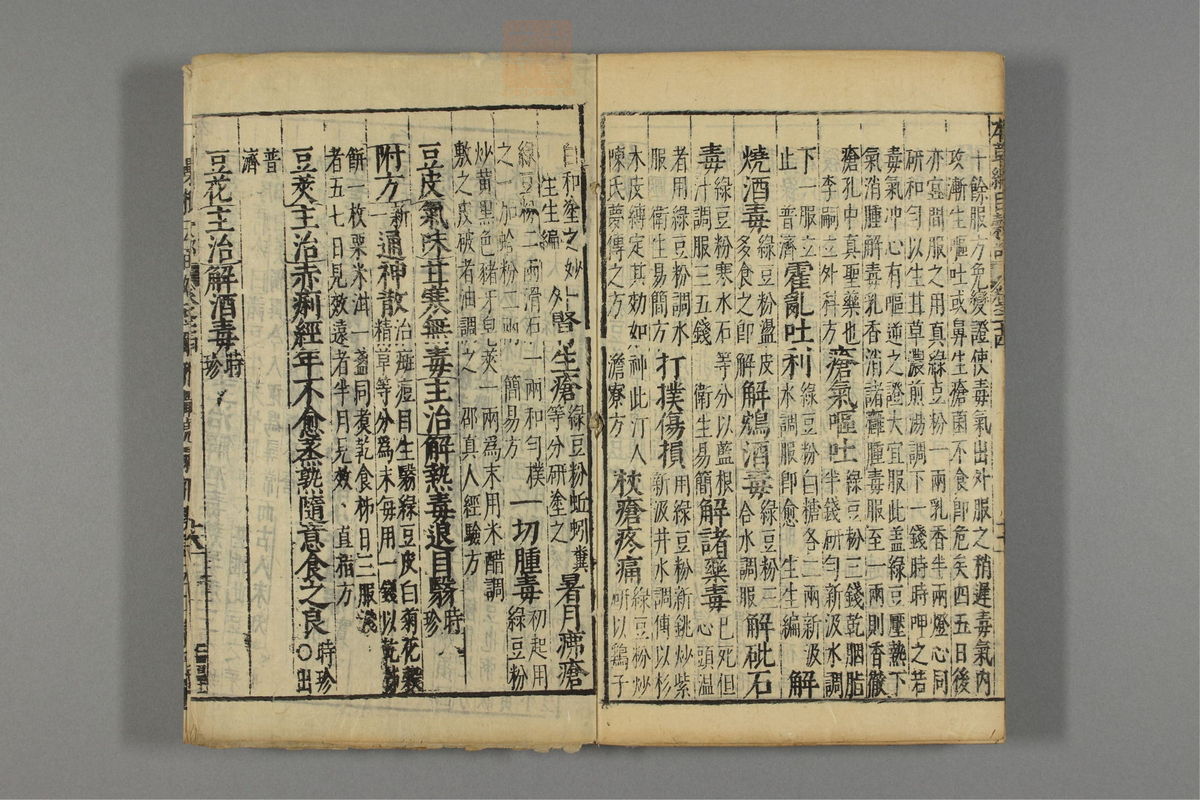 十餘服方免變證使毒氣出外服之稍遲毒氣內
攻漸生嘔吐或鼻生瘡菌不食即危矣四五日後
亦宜間服之用真綠豆粉一兩乳香半兩燈心同
研和勻以生甘草濃煎湯調下一錢時時呷之若
毒氣冲心有嘔逆之證大宜服此盖綠豆壓熱下
氣消腫解毒乳香消諸癰腫毒服至一兩則香徹
瘡孔中真聖藥也
李嗣立外科方 瘡氣嘔吐 綠豆粉三錢乾胭脂
半錢研勻新汲水調
下一服立
止 普濟 霍亂吐利 綠豆粉白糖各二兩新汲
水調服即愈 生生編 解
燒酒毒 綠豆粉盪皮
多食之即解 解鴆酒毒 綠豆粉三
合水調服 解砒石
毒 綠豆粉寒水石等分以藍根
汁調服三五錢 衛生易簡 解諸藥毒 已死但
心頭溫
者用綠豆粉調水
服 衛生易簡方 打撲傷損 用綠豆粉新銚炒紫
新汲井水調傅以杉
木皮縛定其効如神此汀人
陳氏夢傳之方 澹寮方 杖瘡疼痛 綠豆粉炒
研以鷄子
白和塗之妙
生生編 外腎生瘡 綠豆粉蚯蚓糞
等分研塗之 暑月疿瘡
綠豆粉二兩滑石一兩和勻撲
之一加蛤粉二兩 簡易方 一切腫毒 初起用
綠豆粉
炒黃黑色豬牙皂莢一兩為末用米醋調
敷之皮破者油調之 邵真人經驗方
豆皮氣味甘寒無毒主治解熱毒退目翳 時
珍
附方 新一 通神散 治癍痘目生翳綠豆皮白菊花穀
精草等分為末每用一錢以乾柿
餅一枚粟米泔一盞同煑乾食柿日三服淺
者五七日見效遠者半月見效 直指方
豆莢主治赤痢經年不愈蒸熟隨意食之良 時珍
○出
普
濟
豆花主治解酒毒 時
珍